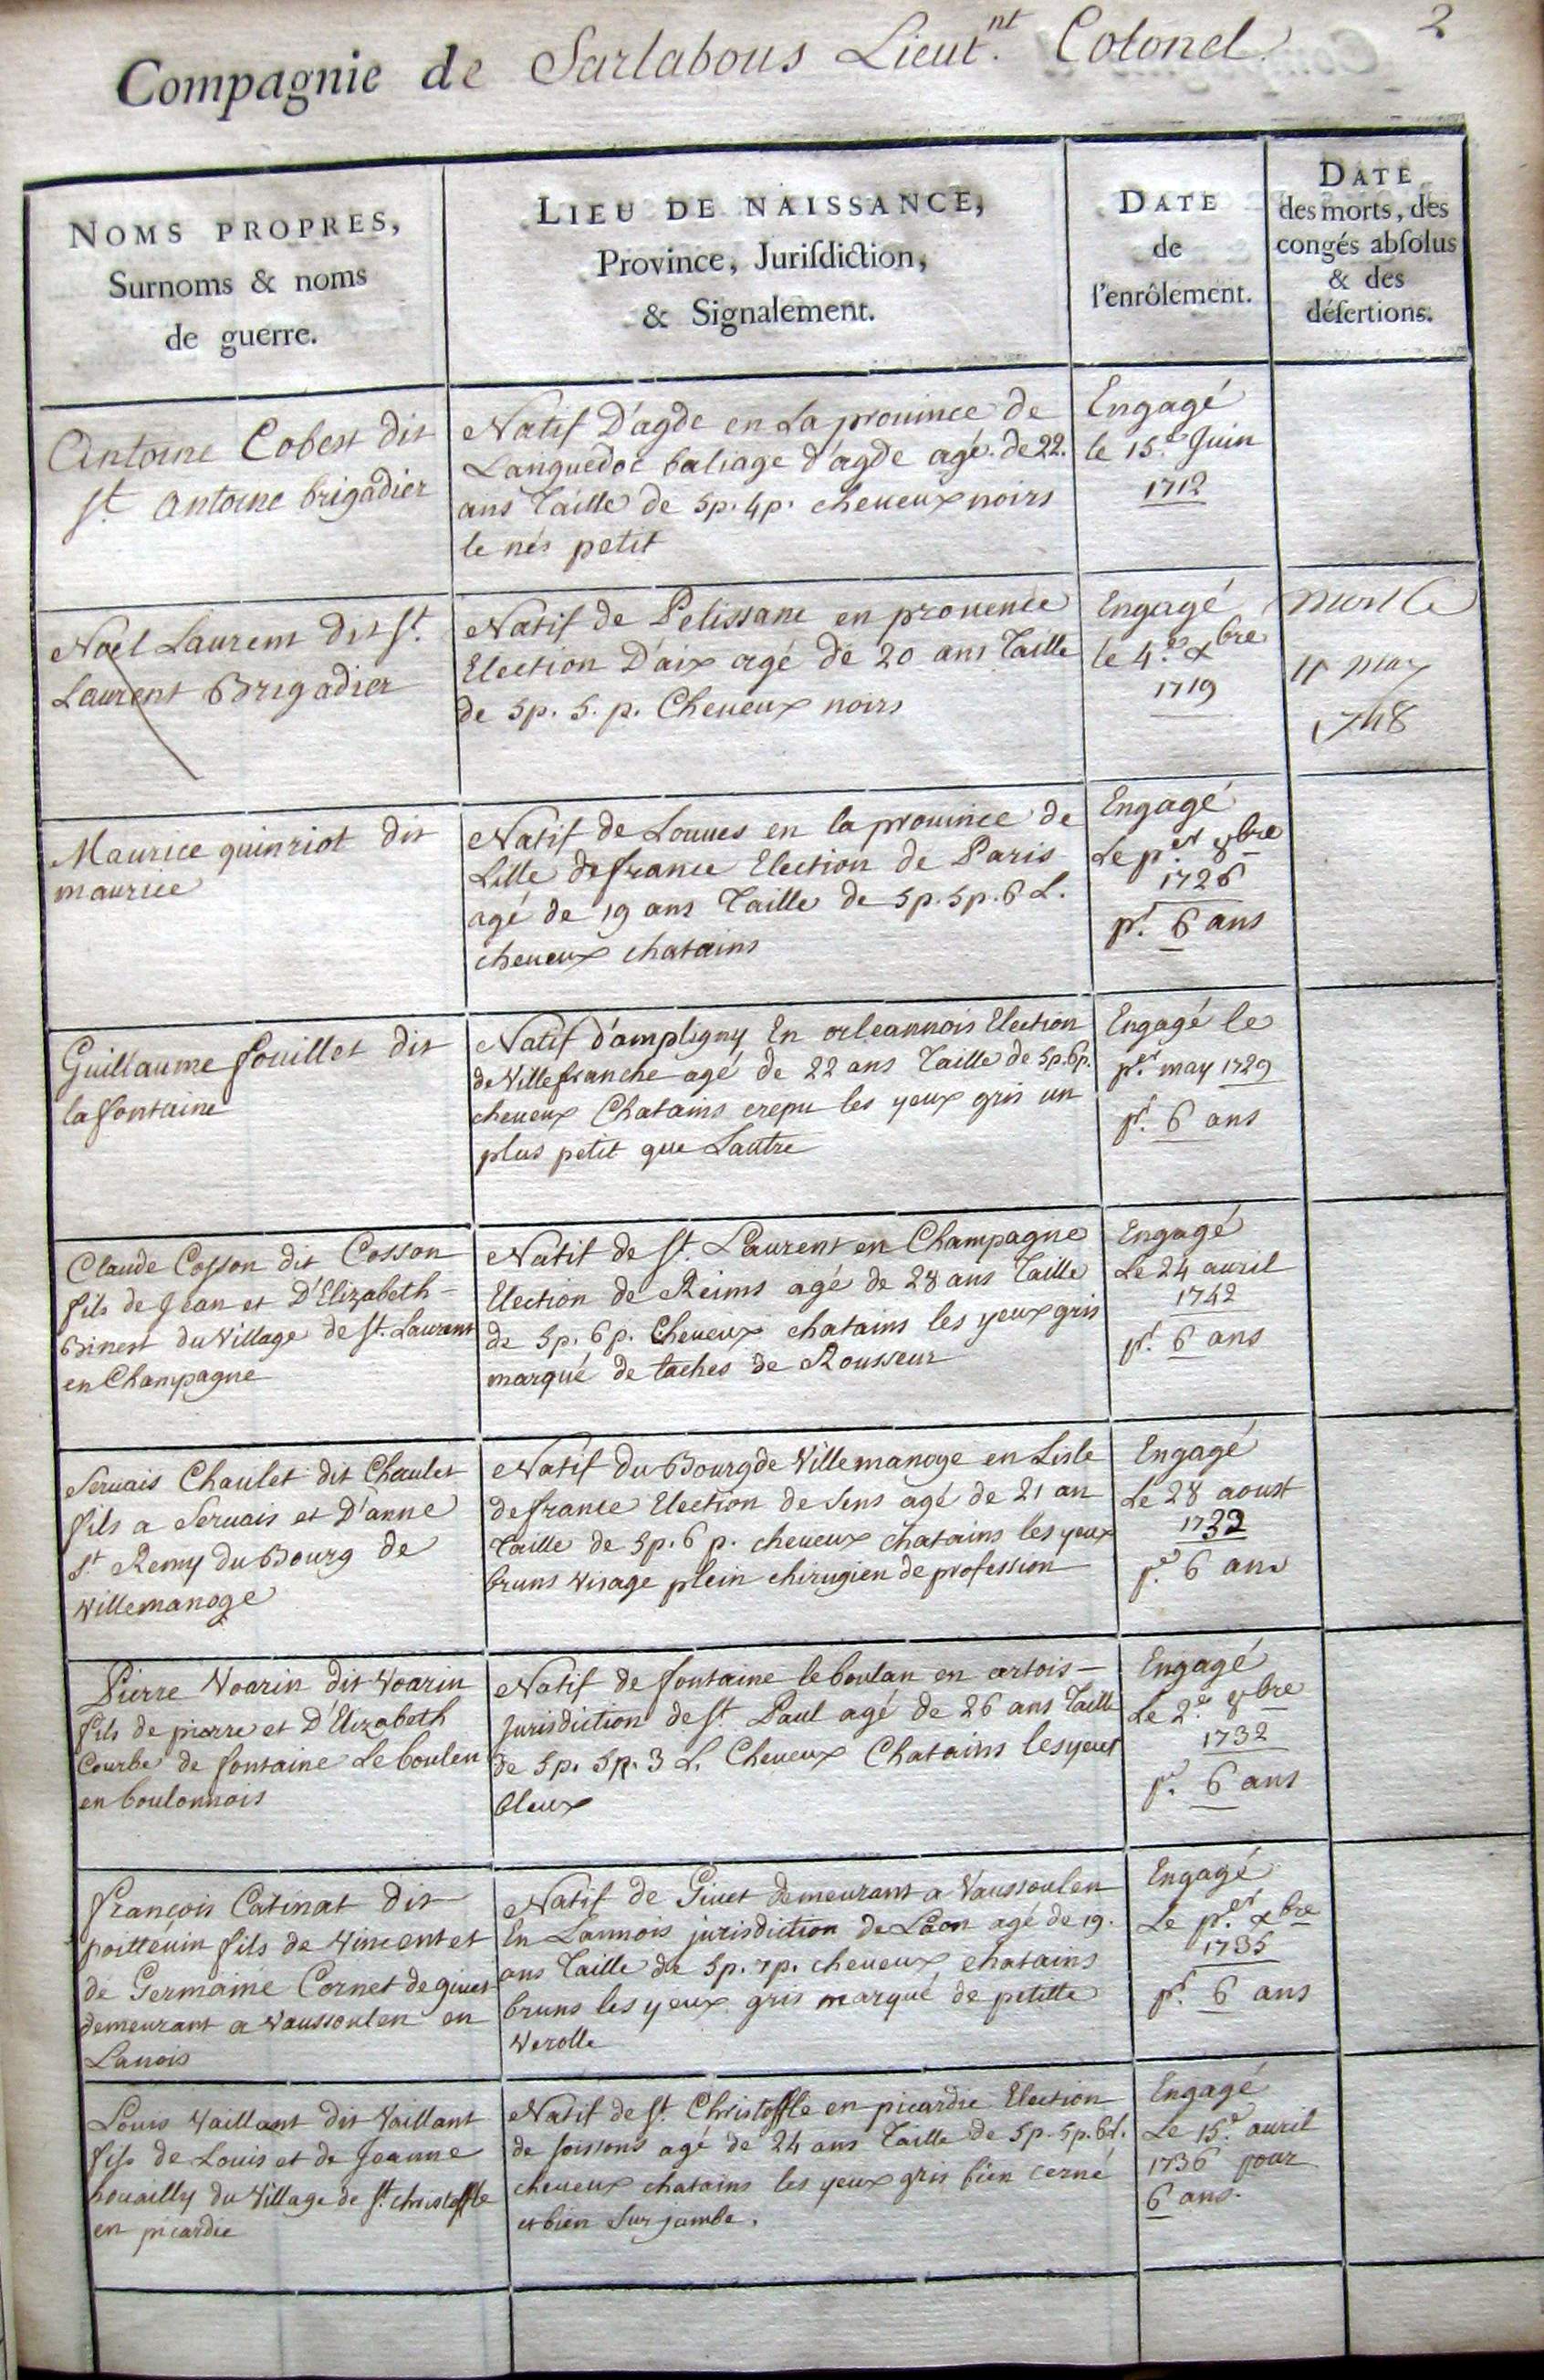 2
Compagnie de Sarlabous Lieut.nt Colonel
NOMS PROPRES,
Surnoms & noms
de guerre.
LIEU DE NAISSANCE,
Province, Jurisdiction,
& Signalement.
DATE
de
l'enrôlement.
DATE
des morts, des
congés absolus
& des
désertions.
Antoine Cobest dit
St. antoine brigadier
Natif D'agde en La prouince de
Languedoc baliage d'agde agé de 22.
ans Taille de 5p. 4p. cheueux noirs
le nés petit
Engagé
le 15.e Juin
1712
Noël Laurent dit St.
Laurent Brigadier
Natif de Pelissane en prouence
Election D'aix agé de 20 ans Taille
de 5p. 5. p. Cheueux noirs
Engagé
le 4.e xbre
1719
mort le
11 may
1748
Maurice quinriot dit
maurice
Natif de Louues en la prouince de
Lille de france Election de Paris
agé de 19 ans Taille de 5p. 5p. 6 L.
cheueux chatains
Engagé
Le p.er 8bre
1726
pr. 6 ans
Guillaume fouillet dit
lafontaine
Natif d'ampligny En orleannois Election
de Villefranche agé de 22 ans Taille de 5p. 6p.
cheueux Chatains crepu les yeux gris un
plus petit que Lautre
Engagé le
p.er may 1729
pr. 6 ans
Claude Cosson dit Cosson
fils de Jean et D'Elizabeth-
Binest du Village de St. Laurent
en Champagne
Natif de St. Laurent en Champagne
Election de Reims agé de 28 ans Taille
de 5p. 6p. Cheueux chatains les yeux gris
marqué de taches de Rousseur
Engagé
Le 24 auril
1742
pr. 6 ans
Seruais Chaulet dit Chaulet
fils a Seruais et D'anne
St Remy du Bourg de
Villemanoge
Natif du Bourg de Villemanoge en Lisle
de france Election de Sens agé de 21 an
Taille de 5p. 6 p. cheueux chatains les yeux
bruns Visage plein chirugien de profession
Engagé
Le 28 aoust
1732
pr. 6 ans
Pierre Voarin dit Voarin
fils de pierre et D'Elizabeth
Courbe de fontaine Le boulen
en boulonnois
Natif de fontaine le boulan en artois-
Jurisdiction de St. Paul agé de 26 ans Taille
de 5p. 5p. 3 L. Cheueux Chatains les yeux
bleux
Engagé
Le 2.e 8bre
1732
pr. 6 ans
François Catinat dit
poitteuin fils de Vincent et
de Germaine Cornet de giuet
demeurant a Vaussoulen en
Lanois
Natif de Giuet demeurant a Vaussoulen
En Lannois jurisdiction de Laon agé de 19.
ans Taille de 5p. 7p. cheueux chatains
bruns les yeux gris marqué de petitte
Verolle
Engagé
Le p.er xbre
1735
pr. 6 ans
Louis Vaillant dit Vaillant
fils de Louis et de Jeanne
houailly du Village de St. christoffle
en picardie
Natif de St. Christoffle en picardie Election
de soissons agé de 24 ans Taille de 5p. 5p. 6L.
cheueux chatains les yeux gris bien cerné
et bien Sur jambe.
Engagé
Le 15.e auril
1736 pour
6 ans.